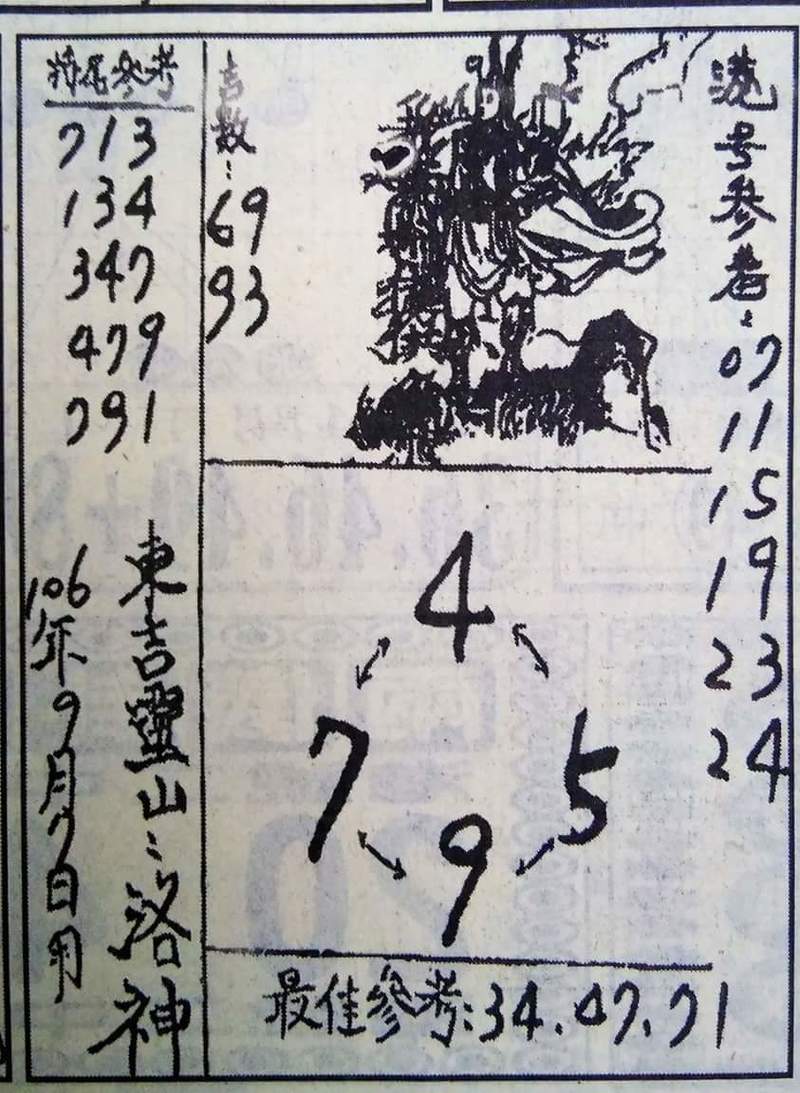 號号參考：
07
11
15
19
23
24
吉数：
69
93
4
7 5
9
最佳參考：34.47.71
參考
713
134
347
479
791
東吉靈山：洛神
106年9月7日用